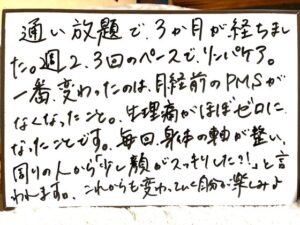 通い放題で、3か月が経ちまし
た。週2、3回のペースで、リンパケア。
一番、変わったのは、月経前のPMSが
なくなったこと。生理痛がほぼゼロに
なったことです。毎回、身体の軸が整い、
周りの人から「少し顔がスッキリした?!」と言
われます。これからも変わっていく自分が楽しみよ